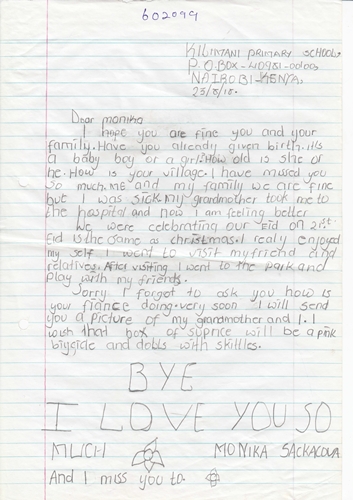 602099
KILIMANI PRIMARY SCHOOL
P.O.BOX - 40951 - 00100
NAIROBI - KENYA.
25/8/18.
Dear monika
I hope you are fine you and your
family. Have you already given birth. it's
a baby boy or a girl. How old is she or
he. How is your village. I have missed you
so much. Me and my family we are fine
but I was sick. My grandmother took me to
the hospital and now I am feeling better
We were celebrating our Eid on 21st.
Eid is the same as christmas. I realy enjoyed
my self I went to visit my friend and
relatives. After visiting I went to the park and
play with my friends.
Sorry I forgot to ask you how is
your fiance doing. very soon I will send
you a picture of my grandmother and I. I
wish that box of suprice will be a pink
bigcicle and dolls with skittles.
BYE
I LOVE YOU SO
MUCH MONIKA SACKACOVA
And I miss you to